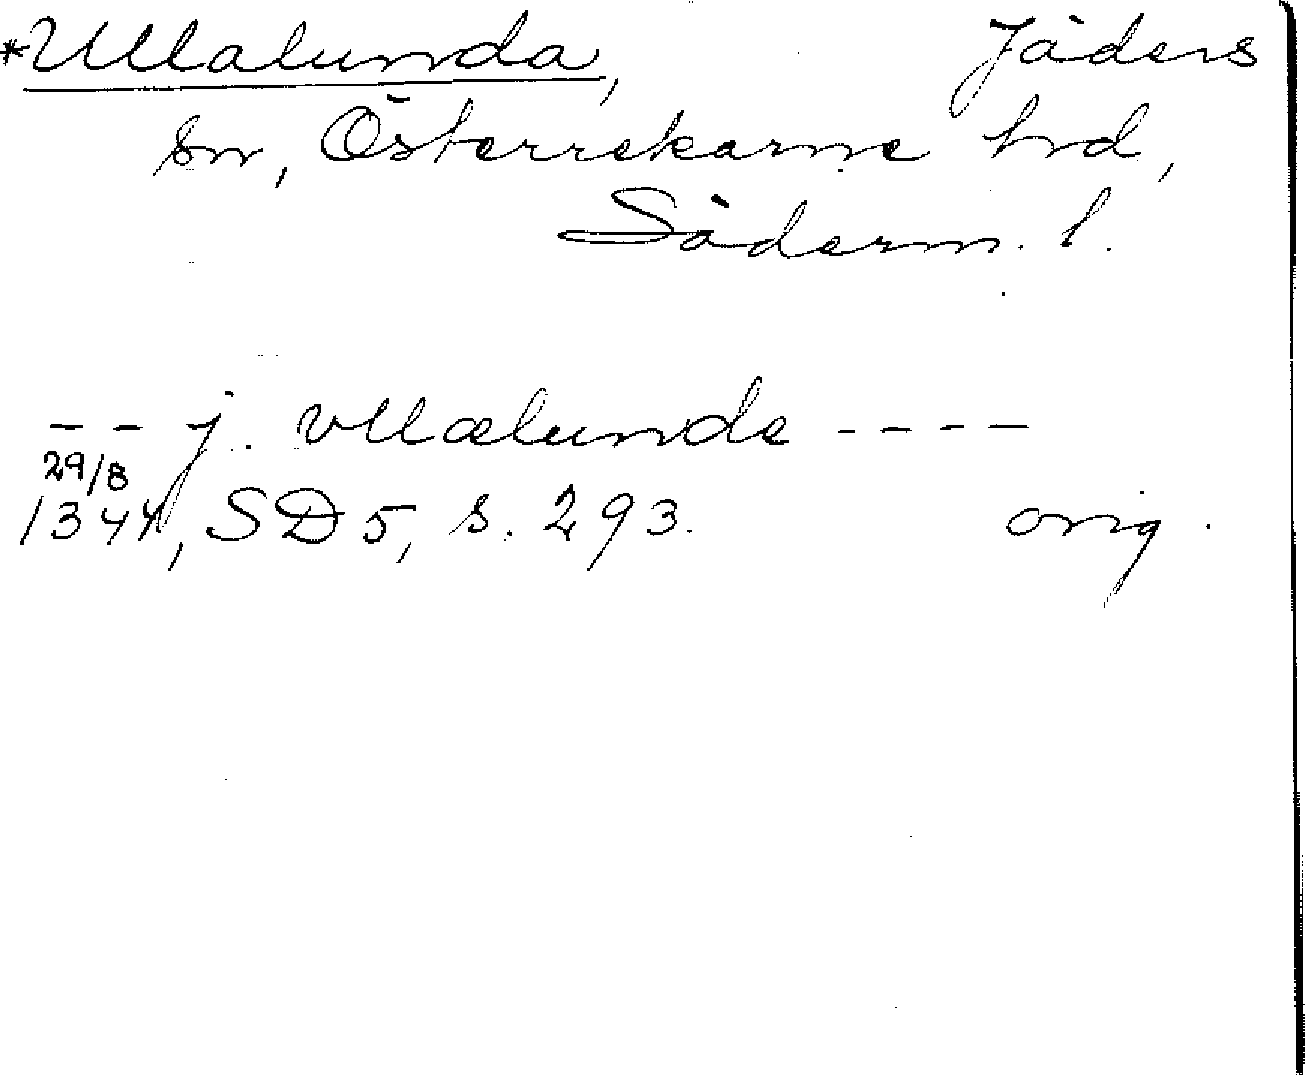 *Ullalunda, Jäders
sn, Österrekarne hd,
Söderm. l.
- - j. vllælunde - - - -
29/8
1344, SD 5, s. 293. orig.